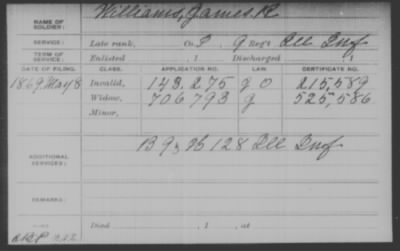 NAME OF SOLDIER: Williams, James R
SERVICE: Late rank, Co. F, 9 Reg't Ill Inf
TERM OF SERVICE: Enlisted , 1 Discharged , 1
DATE OF FILING. CLASS. APPLICATION NO. LAW. CERTIFICATE NO.
1869, May 8 Invalid, 143,275 g o 215,589
Widow, 706793 g 525,586
Minor,
ADDITIONAL SERVICES: B 93 128 Ill Inf
REMARKS:
Died , 1 , at